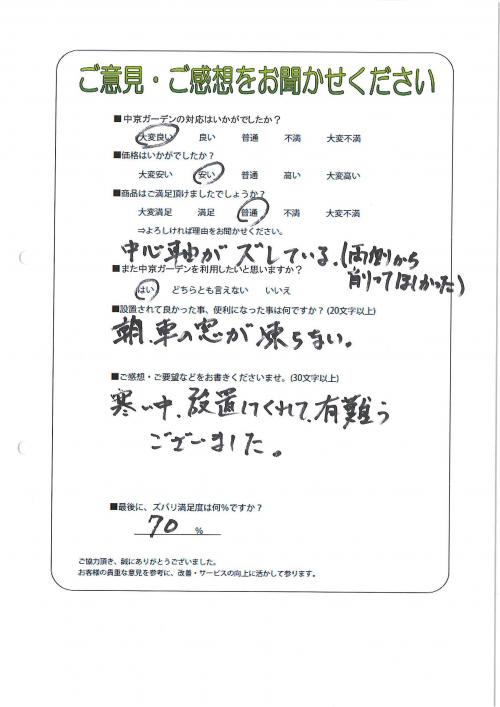 ご意見・ご感想をお聞かせください
■中京ガーデンの対応はいかがでしたか？
大変良い 良い 普通 不満 大変不満
■価格はいかがでしたか？
大変安い 安い 普通 高い 大変高い
■商品はご満足頂けましたでしょうか？
大変満足 満足 普通 不満 大変不満
⇒よろしければ理由をお聞かせください。
中心軸がズレている。(両側から
削ってほしかった)
■また中京ガーデンを利用したいと思いますか？
はい どちらとも言えない いいえ
■設置されて良かった事、便利になった事は何ですか？(20文字以上)
朝、車の窓が凍らない。
■ご感想・ご要望などをお書きくださいませ。(30文字以上)
寒い中、設置してくれて、有難う
ございました。
■最後に、ズバリ満足度は何%ですか？
70 %
ご協力頂き、誠にありがとうございました。
お客様の貴重な意見を参考に、改善・サービスの向上に活かして参ります。